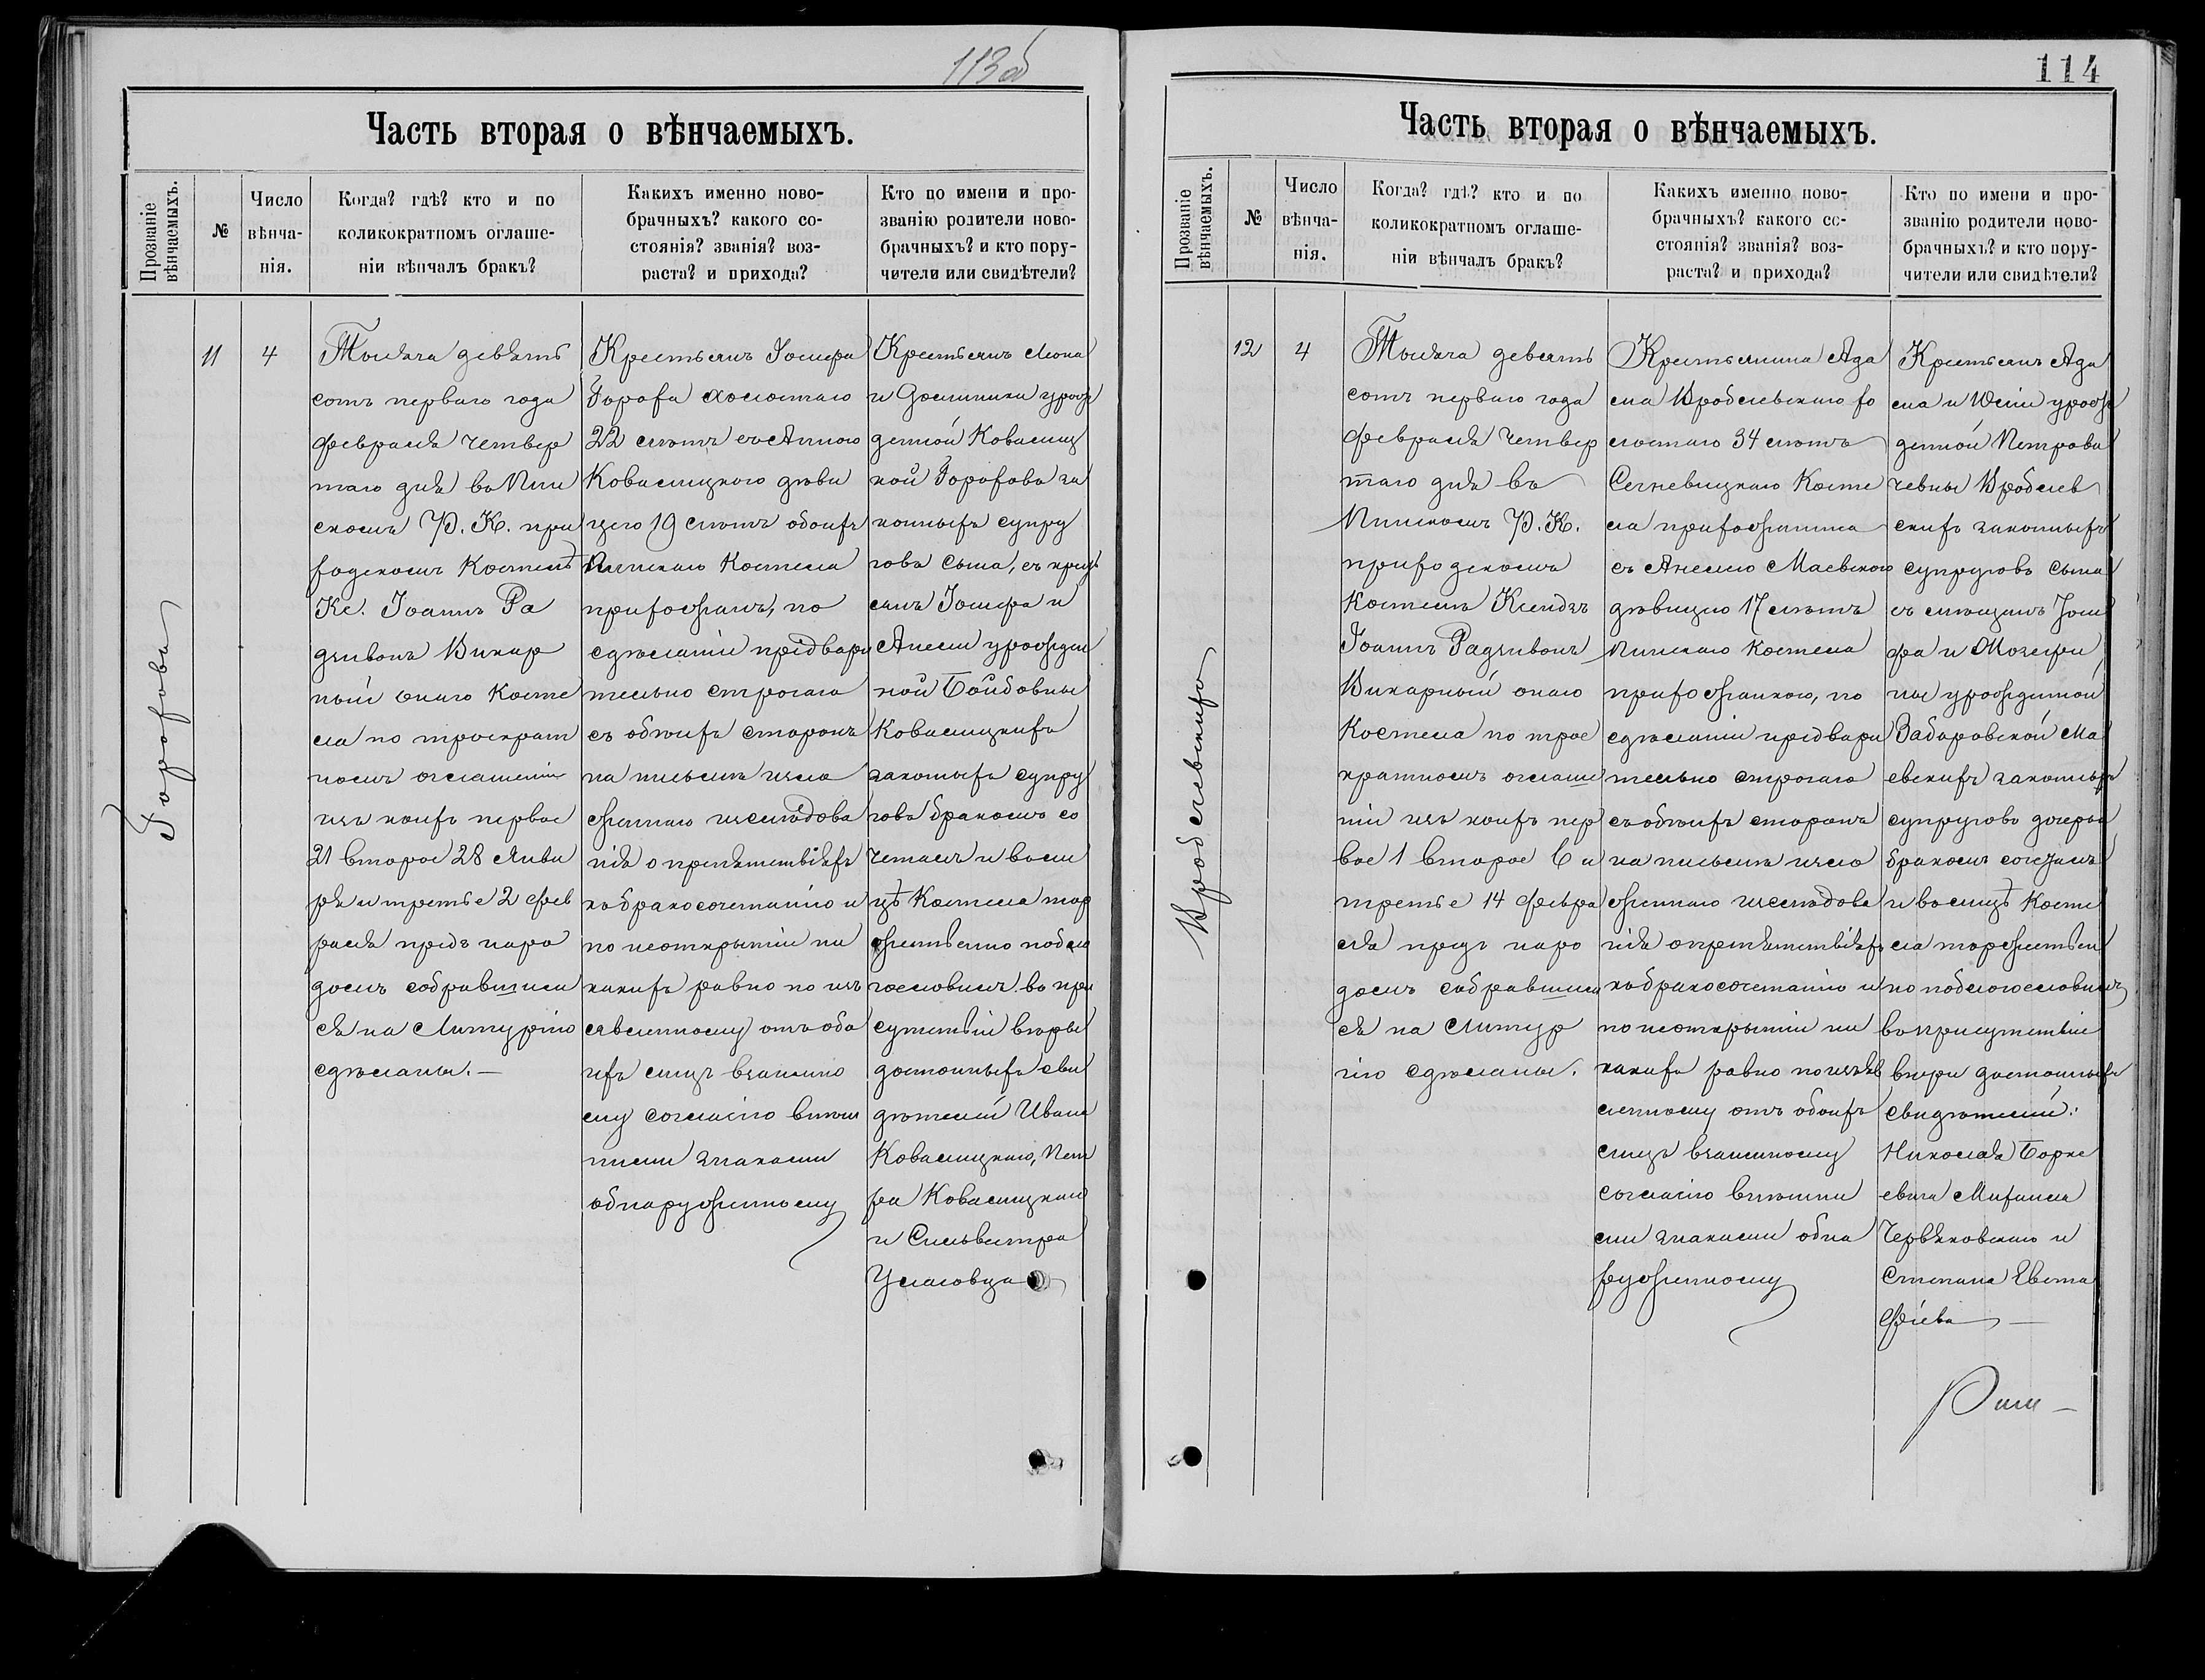 113об
Часть вторая о вѣнчаемыхъ.
Прозваніе вѣнчаемыхъ.
№
Число вѣнча-
нія.
Когда? гдѣ? кто и по
коликократномъ оглаше-
ніи вѣнчалъ бракъ?
Какихъ именно ново-
брачныхъ? какого со-
стоянія? званія? воз-
раста? и прихода?
Кто по имени и про-
званію родители ново-
брачныхъ? и кто пору-
чители или свидѣтели?
Горохова
11
4
Тысяча девять
сотъ перваго года
февраля четвер
таго дня во Пин
скомъ Р. К. при
ходскомъ Костелѣ
Кс. Іоаннъ Ра
дзивонъ Викар
ный онаго Косте
ла по троекрат
номъ оглашеніи
изъ коихъ первое
21 второе 28 Янва
ря и третье 2 фев
раля предъ наро
домъ собравшим
ся на Литургію
сдѣланы.—
Крестьянъ Іосифа
Гороха холостаго
22 лѣтъ съ Анною
Ковалицкого дѣви
цею 19 лѣтъ обоихъ
Пинскаго Костела
прихожанъ, по
сдѣланіи предвари
тельно строгаго
съ обѣихъ сторонъ
на письмѣ изло
женнаго изслѣдова
нія о препятствіяхъ
къ бракосочетанію и
по неоткрытіи ни
какихъ равно по изъ
явленному отъ обо
ихъ лицъ взаимно
му согласію внѣш
ними знаками
обнаруженному
Крестьянъ Иона
и Доминики урож
денной Ковалиц
кой Горохова за
конныхъ супру
говъ сына, съ крест
янъ Іосифа и
Анели урожден
ной Бойдовны
Ковалицкихъ
законныхъ супру
говъ бракомъ со
четалъ и въ ли
цѣ Костела тор
жественно побла
гословилъ въ при
сутствіи вѣры
достойныхъ сви
дѣтелей Ивана
Ковалицкаго, Пет
ра Ковалицкаго
и Сильвестра
114
Часть вторая о вѣнчаемыхъ.
Прозваніе вѣнчаемыхъ.
№
Число вѣнча-
нія.
Когда? гдѣ? кто и по
коликократномъ оглаше-
ніи вѣнчалъ бракъ?
Какихъ именно ново-
брачныхъ? какого со-
стоянія? званія? воз-
раста? и прихода?
Кто по имени и про-
званію родители ново-
брачныхъ? и кто пору-
чители или свидѣтели?
Вроблевскихъ
12
4
Тысяча девять
сотъ перваго года
февраля четвер
таго дня въ
Пинскомъ Р. К.
приходскомъ
Костелѣ Ксендзъ
Іоаннъ Радзивонъ
Викарный онаго
Костела по трое
кратномъ оглаше
ніи изъ коихъ пер
вое 1 второе 6 и
третье 14 февра
ля предъ наро
домъ собравшим
ся на Литур
гію сдѣланы.
Крестьянина Ада
ма Вроблевскаго хо
лостаго 34 лѣтъ
Сегневицкаго Косте
ла прихожанина
съ Анелею Маевского
дѣвицею 17 лѣтъ
Пинскаго Костела
прихожанкою, по
сдѣланіи предвари
тельно строгаго
съ обѣихъ сторонъ
на письмѣ изло
женнаго изслѣдова
нія о препятствіяхъ
къ бракосочетанію и
по неоткрытіи ни
какихъ равно по изъяв
ленному отъ обоихъ
лицъ взаимному
согласію внѣшни
ми знаками обна
руженному
Крестьянъ Ада
ма и Юліи урож
денной Петрова
чевны Вроблев
скихъ законныхъ
супруговъ сына
съ мѣщанъ Іоси
фа и Мозефи
ны урожденной
Заборовской Ма
евскихъ законныхъ
супруговъ дочерью
бракомъ сочеталъ
и въ лицѣ Косте
ла торжествен
но поблагословилъ
въ присутствіи
вѣры достойныхъ
свидѣтелей:
Николая Борке
вича Михаила
Червяковскаго и
Степана Евста
фіева —